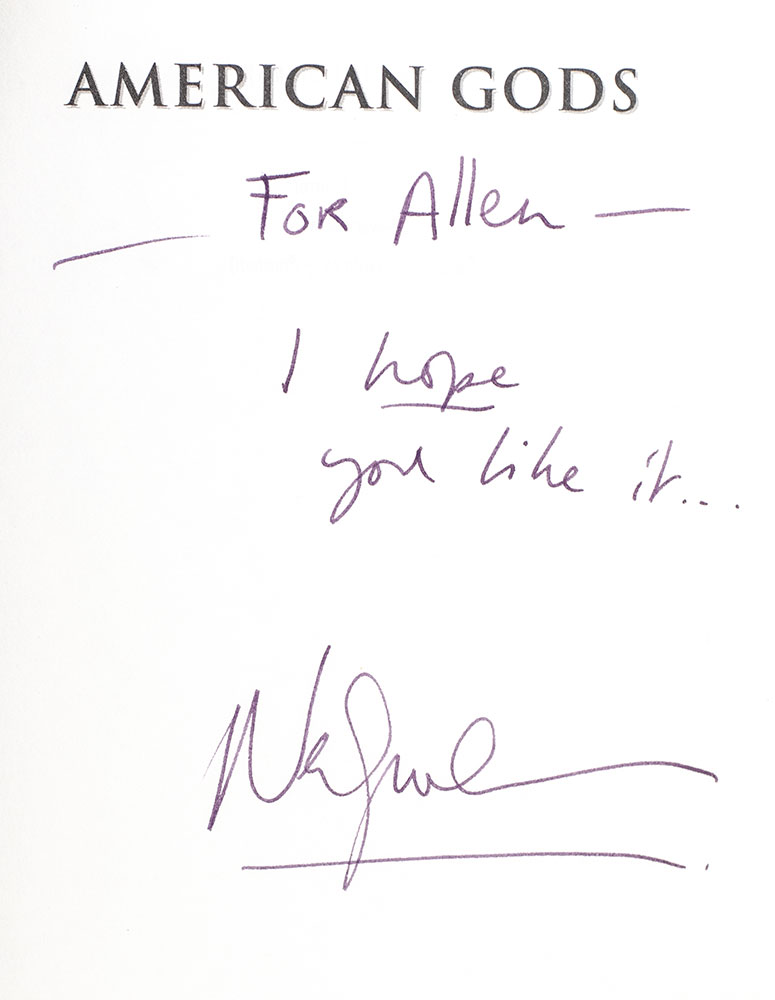 AMERICAN GODS
— For Allen —
I hope
you like it...